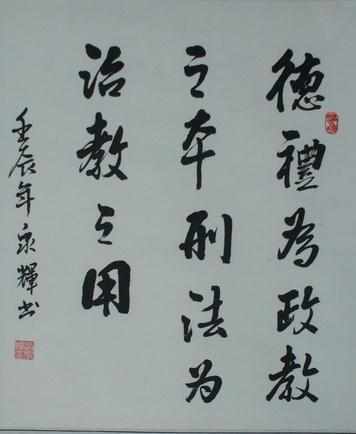 德禮為政教
之本刑法为
治教之用
壬辰年永輝书